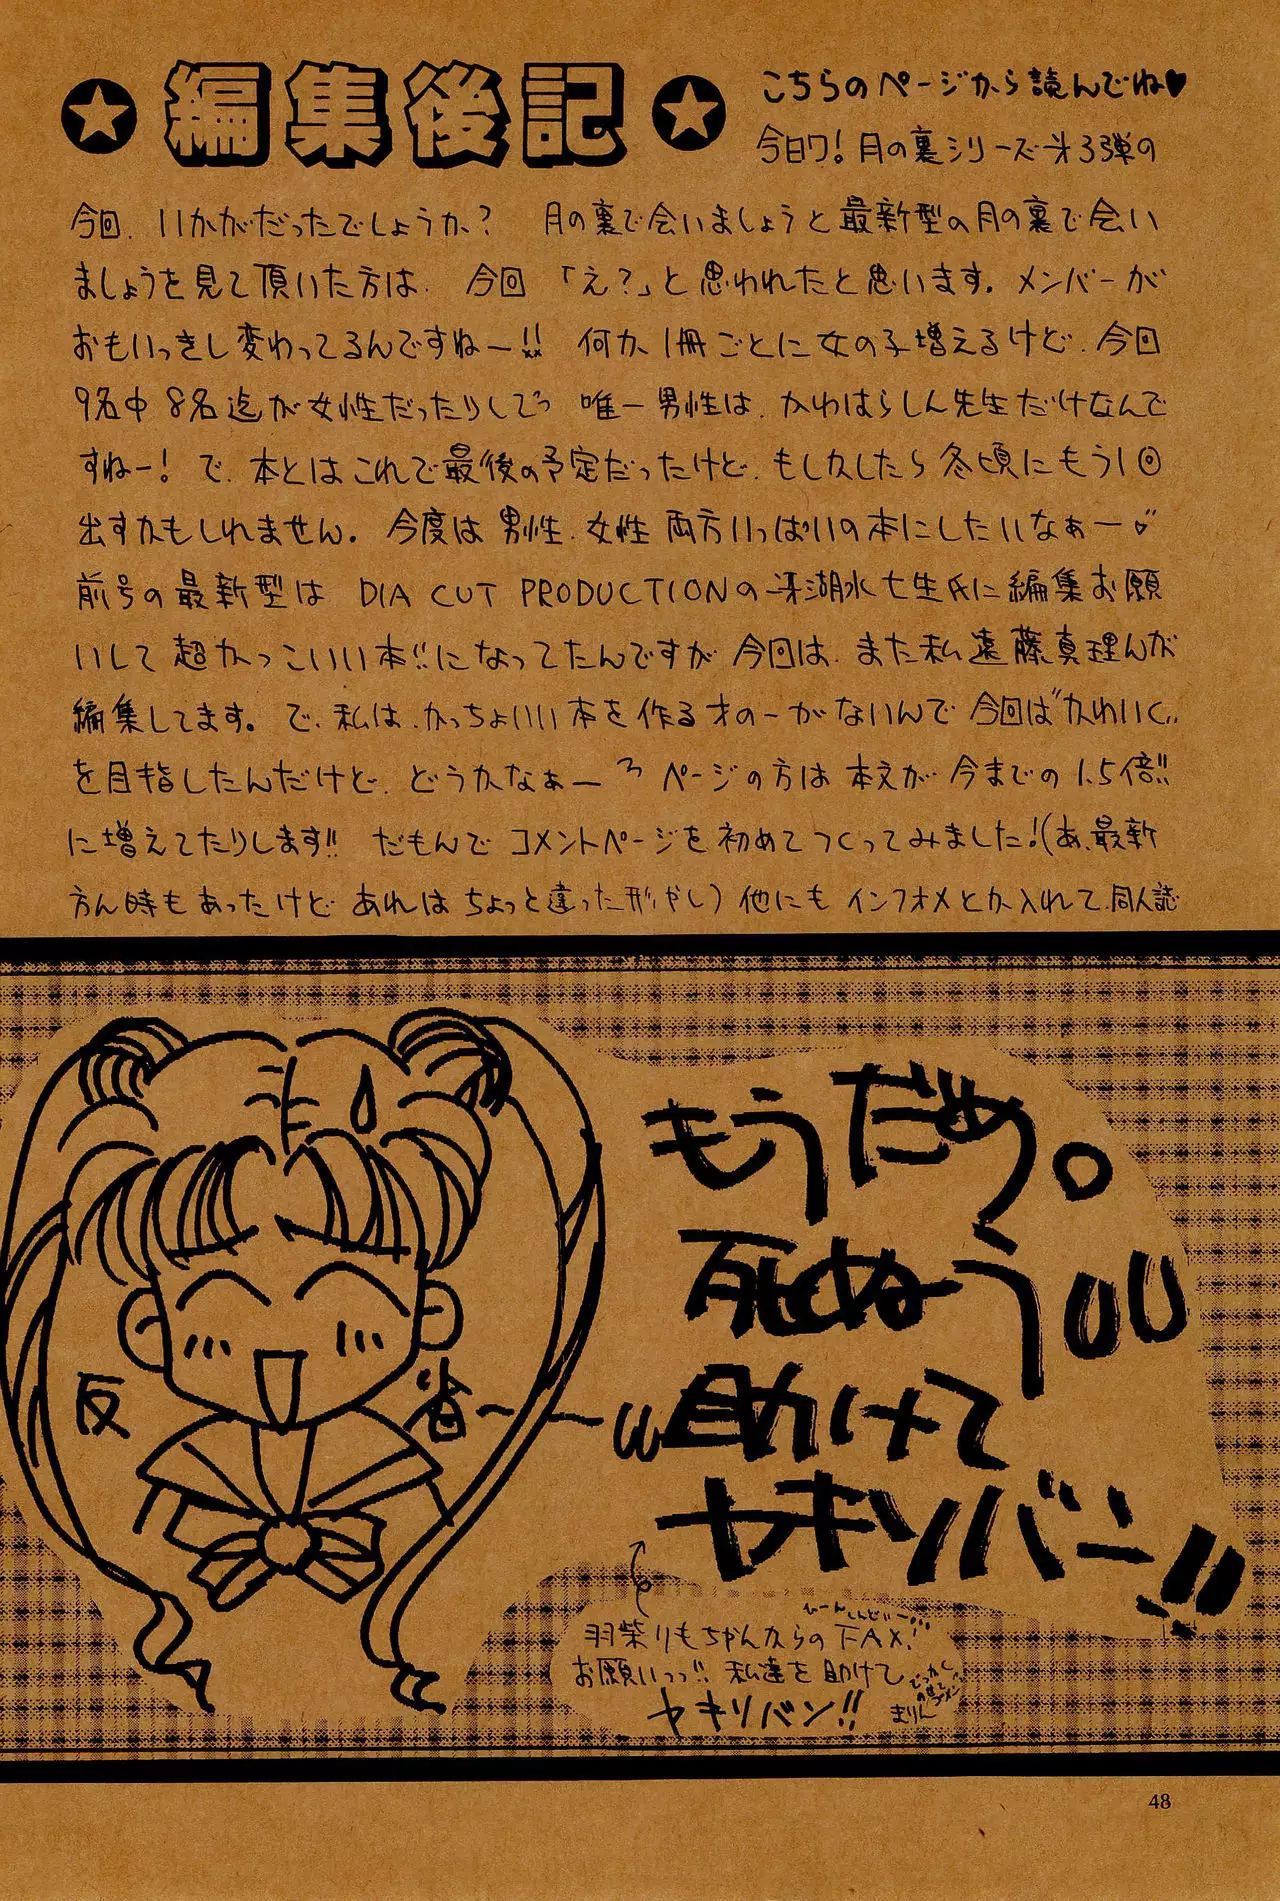 編集後記
こちらのページから読んでね♥
今日ワ！月の裏シリーズ㐧3弾の
今回、いかがだったでしょうか？ 月の裏で会いましょうと最新型の月の裏で会い
ましょうを見て頂いた方は、今回「え？」と思われたと思います。メンバーが
おもいっきし変わってるんですねー!! 何か、1冊ごとに女の子増えるけど、今回
9名中8名迄が女性だったりしてっ 唯一男性は、かわはらしん先生だけなんで
すねー！で、本とはこれで最後の予定だったけど、もしかしたら冬頃にもう1回
出すかもしれません。今度は男性、女性両方いっぱいの本にしたいなぁー
前号の最新型は DIA CUT PRODUCTIONの冴湖水七生氏に編集お願
いして超かっこいい本!!になってたんですが今回は、また私遠藤真理んが
編集してます。で、私は、かっちょいい本を作る才のーがないんで今回は"かわいく"
を目指したんだけど、どうかなぁー ページの方は本文が今までの1.5倍!!
に増えてたりします!! だもんでコメントページを初めてつくってみました！(あ、最新
方ん時もあったけどあれはちょっと違った形やし) 他にもインフォメとか入れて、同人誌
もうだめ。
死ぬーう
助けて
ヤキソバーン!!
反省~~~
羽柴りもちゃんからのFAX。
お願いっっ!! 私達を助けて
ヤキソバン!!
でっかく
のせて
ゴメン
まりん
48